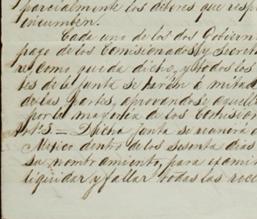 parcialmente los deberes que resp
incumben.
Cada uno de los dos Gobiern
pago de los Comisionados y Secret
re, como queda dicho, y todos los
tes de la junta se harán á mitad
de las partes, aprovandose aquell
por la mayoria de los Comision
Art. 5 = Dicha junta se reunirá
Mejico dentro de los sesenta dias
su nombramiento, para exami
liquidar y fallar todas las recl